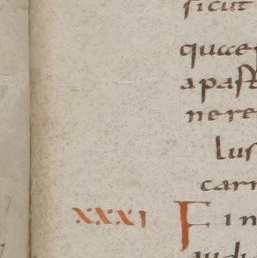 sicut
apast
nere
lus
carn
XXXI Fin